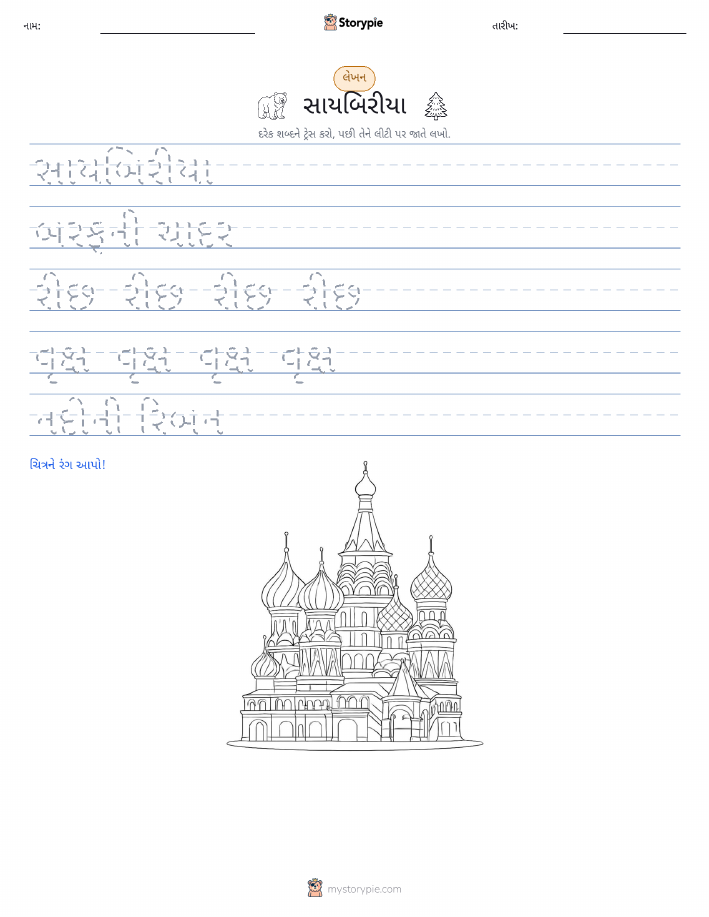 નામ:
Storypie
તારીખ:
લેખન
સાયબિરીયા
દરેક શબ્દને ટ્રેસ કરો, પછી તેને લીટી પર જાતે લખો.
સાયબિરીયા
બરફની ચાદર
રીંછ રીંછ રીંછ રીંછ
વૃક્ષ વૃક્ષ વૃક્ષ વૃક્ષ
નદીની રિબન
ચિત્રને રંગ આપો!
mystorypie.com